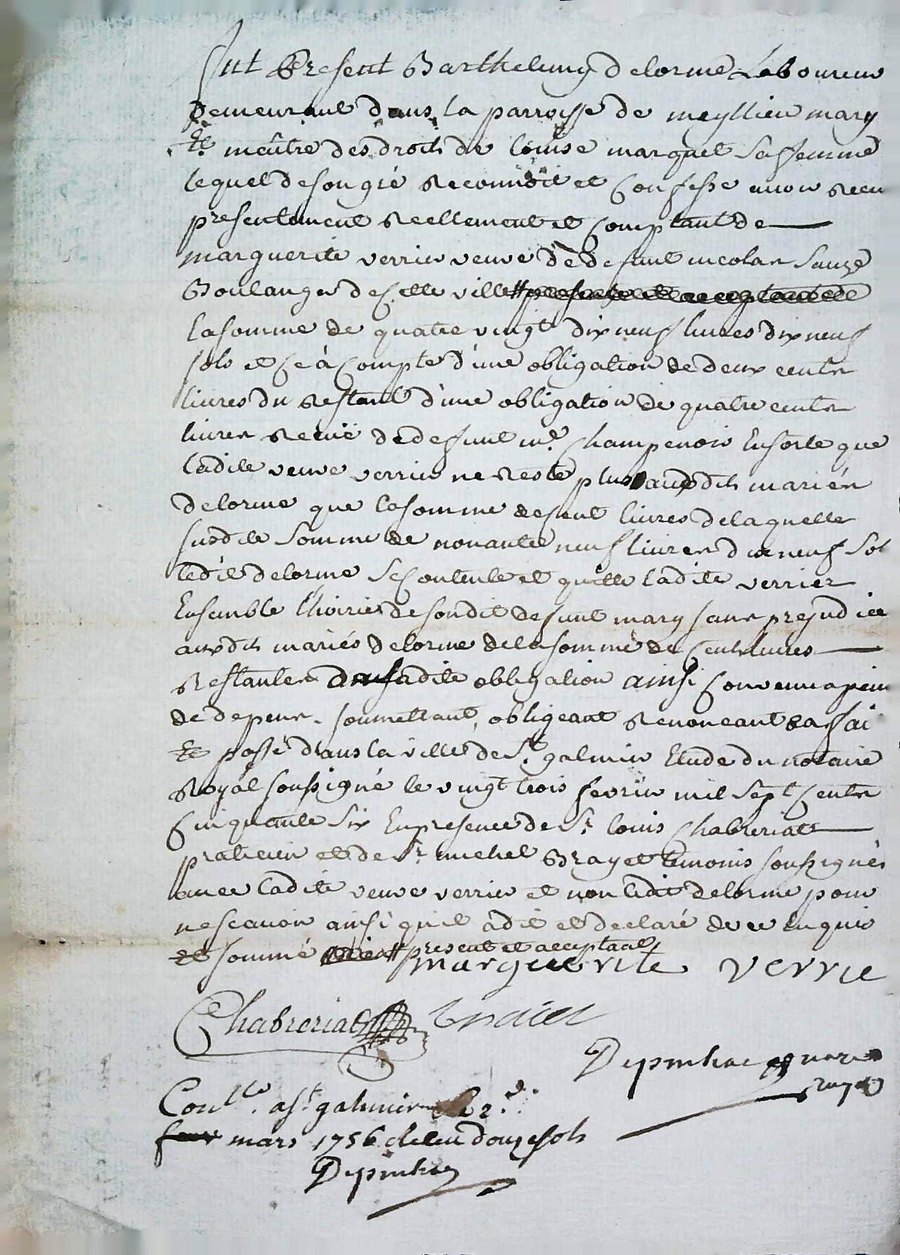 fut Present Barthelemy delorme Laboureur
demeurant dans la parroisse de meyllieu mary
et maître des droits de Louise marquet sa femme
lequel de son gré Reconnoit et Confesse avoir Receu
presentement Reellement et Comptant de
marguerite verrier veuve de defunt nicolas
Boulanger de Cette ville # presente et acceptante
la somme de quatre vingt dix neuf livres dix neuf
sols et Ce à Compte d'une obligation de deux cents
livres du Restant d'une obligation de quatre cents
livres Receüe de defunt me. Champenois Ensorte que
ladite veuve verrier ne Reste plus auxdits mariés
delorme que la somme de Cent livres de laquelle
susdite somme de nonante neuf livres dix neuf sol
ledit delorme se Contente et quitte ladite verrier
Ensemble l'hoirie de sondit defunt mary sans prejudice
auxdits mariés delorme de la somme de Cent livres
Restantes de ladite obligation ainsi Convenu a peine
de depens. soumettant, obligeant Renonceant &a fai
et passé dans la ville de St. galmier Etude du notaire
Royal soussigné le vingt trois fevrier mil sept Cents
Cinquante Six En presence de Sr. louis Chabreriat
praticien et de Sr. michel Brayet temoins soussignés
avec ladite veuve verrier et non ledit delorme pour
ne scavoir ainsi qu'il a dit et declaré de ce enquis
et sommé # present et acceptant
marguerite verrie
Chabreriat
Depinhac nore
royal
Conlle. a St. galmier le 2e.
mars 1756 douze sols
Depinhac